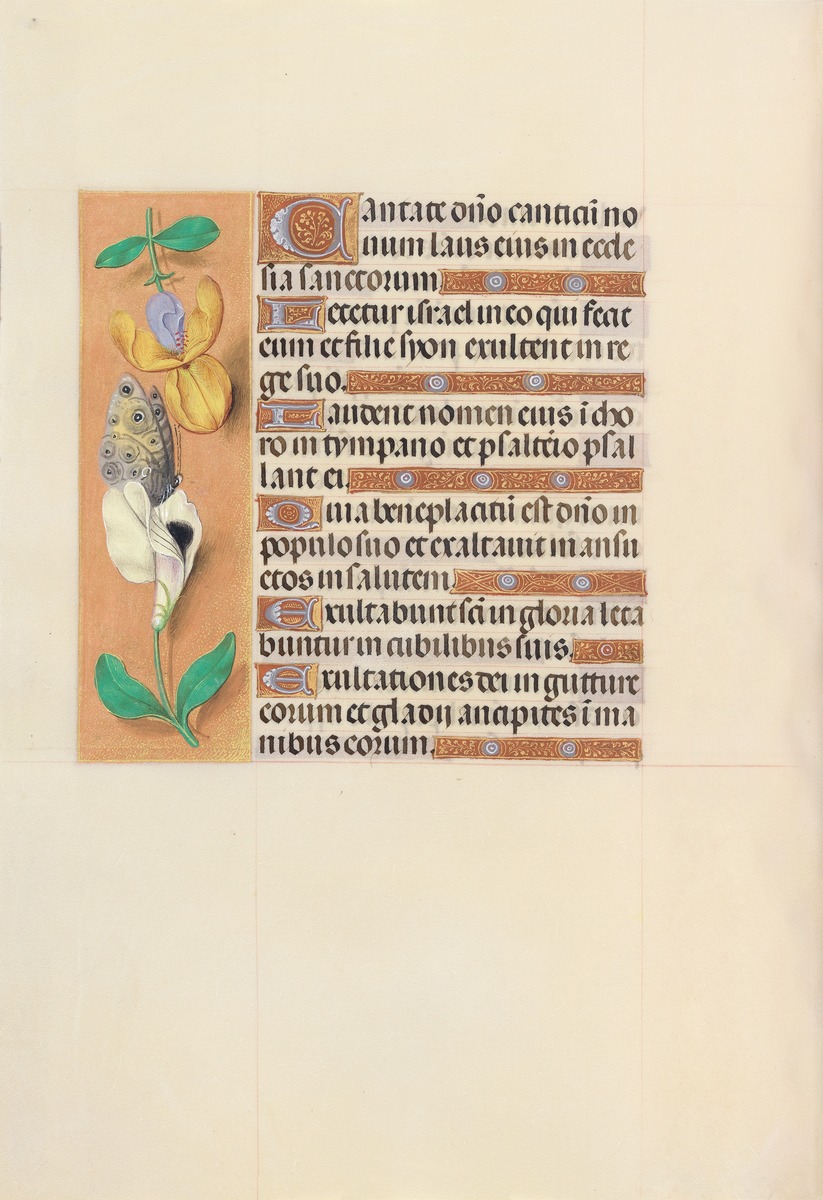 Cantate dño canticū no
uum laus eius in eccle
sia sanctorum
Letetur israel in eo qui fecit
eum et filie syon exultent in re
ge suo.
Laudent nomen eius ī cho
ro in tympano et psalterio psal
lant ei.
Quia beneplacitū est dño in
populo suo et exaltauit mansu
etos in salutem
Exultabunt scī in gloria leta
buntur in cubilibus suis.
Exultationes dei in gutture
eorum et gladij ancipites ī ma
nibus eorum.